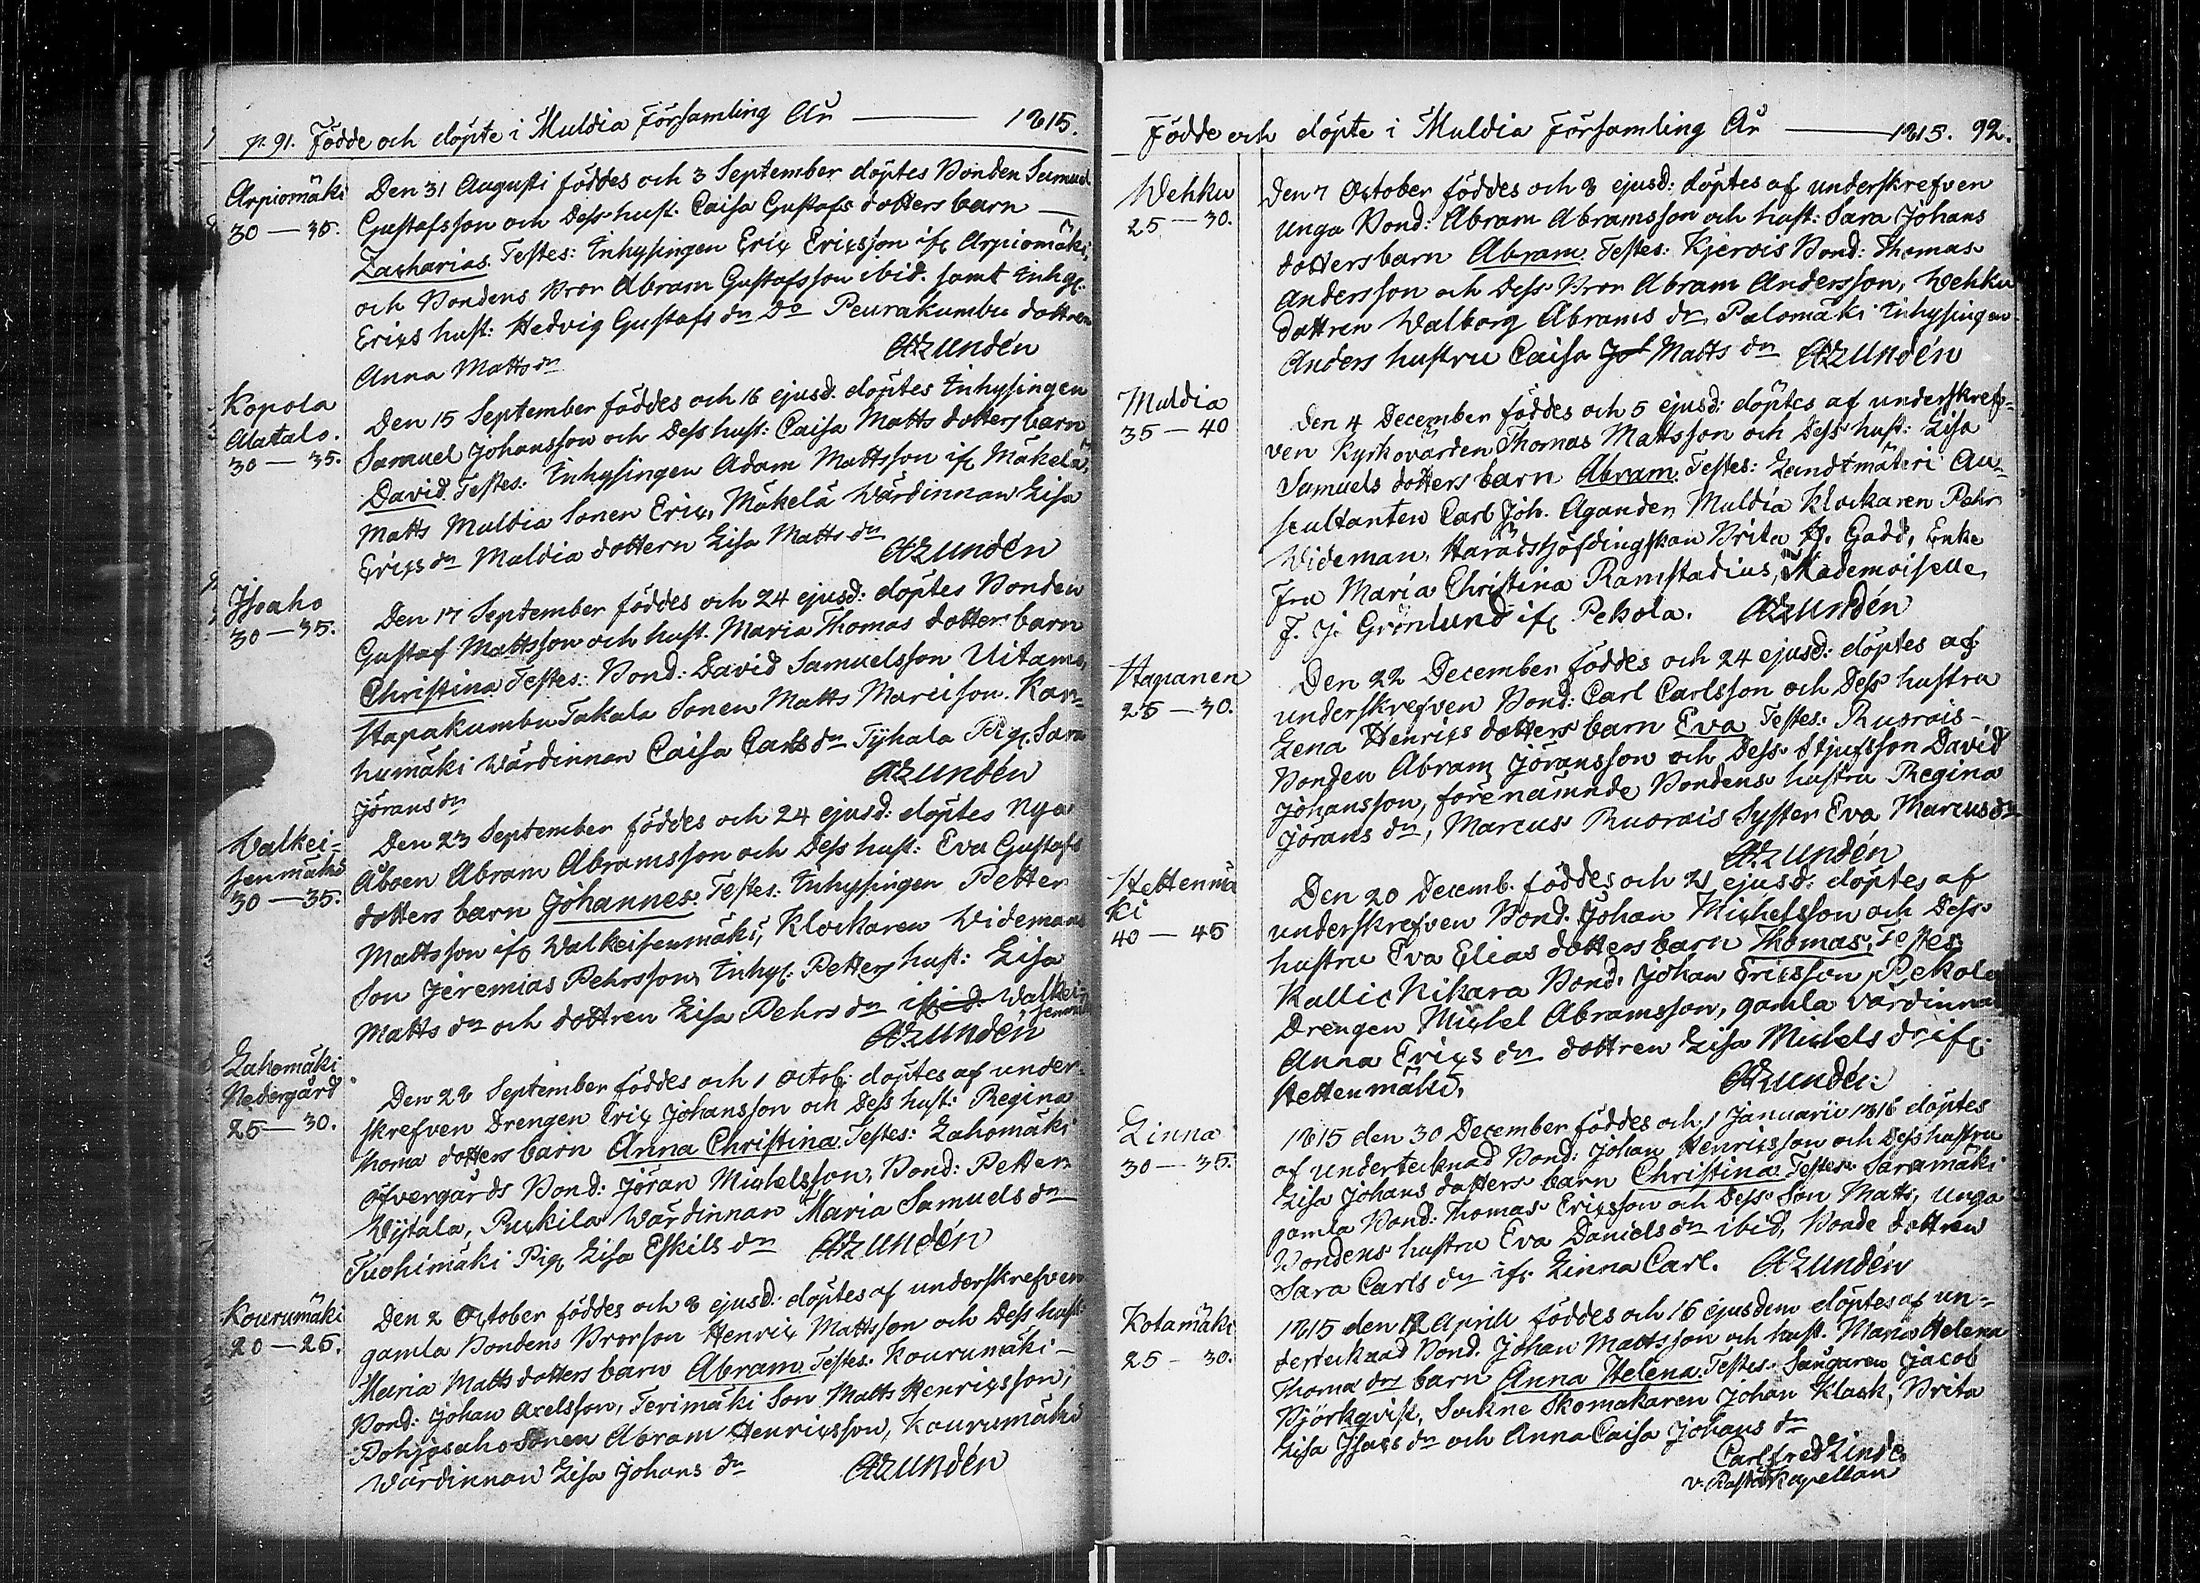 p. 91. Födde och döpte i Muldia Församling År — 1815.
Arpiomäki
30 — 35.
Den 31 Augusti föddes och 3 September döptes Bonden Samuel
Gustafsson och Dess hust. Caisa Gustafs dotters barn —
Zacharias. Testes: Inhysingen Eric Ericsson ifr. Arpiomäki,
och Bondens Bror Abram Gustafsson ibid. samt Inhys:
Erics hust: Hedvig Gustafs dr Do Peurakumbu dottren
Anna Matts dr
AZundén
Kopola
Alatalo.
30 — 35.
Den 15 September föddes och 16 ejusd. döptes Inhysingen
Samuel Johansson och Dess hust: Caisa Matts dotters barn
David. Testes: Inhysingen Adam Mattsson ifr Mäkelä,
Matts Muldia Sonen Eric, Mäkelä Wärdinnan Lisa
Erics dr Muldia dottern Lisa Matts dr
AZundén
Isoaho
30 — 35.
Den 17 September föddes och 24 ejusd: döptes Bonden
Gustaf Mattsson och hust. Maria Thomas dotters barn
Christina Testes: Bond: David Samuelsson Uitamo,
Hapakumbu Takala Sonen Matts Marcison. Kan=
humäki Wärdinnan Caisa Carls dr Tÿhala Pig. Sara
Jörans dr
AZundén
Walkei=
senmäki
30 — 35.
Den 23 September föddes och 24 ejusd: döptes Nya
Åboen Abram Abramsson och Dess hust: Eva Gustafs
dotters barn Johannes. Testes: Inhysingen Petter
Mattsson ifr Walkeisenmäki, Klockaren Widemans
Son Jeremias Pehrsson, Inhys: Petters hust: Lisa
Matts dr och dottren Lisa Pehrs dr ibid Walkei
senmäki
AZundén
Lahomäki
Nedergård
25 — 30.
Den 28 September föddes och 1 Octob: döptes af under=
skrefven Drengen Eric Johansson och Dess hust: Regina
Thoma dotters barn Anna Christina. Testes: Lahomäki
öfvergårds Bond: Jöran Michelsson, Bond: Petter
Wÿtala, Puckila Wärdinnan Maria Samuels dr
Tuohimäki Pig. Lisa Eskils dr AZundén
Kourumäki
20 — 25.
Den 2 October föddes och 8 ejusd: döptes af underskrefven
gamla Bondens Brorson Henric Mattsson och Dess hust:
Maria Matts dotters barn Abram. Testes: Kourumäki—
Bond: Johan Axelsson, Terimäki Son Matts Henricsson,
Pohjosaho Sonen Abram Henricsson, Kourumäki
Wärdinnan Lisa Johans dr
AZundén
Födde och döpte i Muldia Församling År — 1815. 92.
Wehku
25 — 30.
Den 7 October föddes och 8 ejusd: döptes af underskrefven
unga Bond: Abram Abramsson och hust: Sara Johans
dotters barn Abram. Testes: Kjerois Bond: Thomas
Andersson och Dess Bror Abram Andersson, Wehku
dottren Walborg Abrams dr, Palomäki Inhysingen
Anders hustru Caisa Joh Matts dr AZundén
Muldia
35 — 40
Den 4 December föddes och 5 ejusd: döptes af underskref=
ven Kyrkovärden Thomas Mattsson och Dess hust: Lisa
Samuels dotters barn Abram. Testes: Landtmäteri Au=
scultanten Carl Joh. Aganden Muldia Klockaren Pehr
Wideman, Häradshöfdingskan Brita Gadd, Enke
Fru Maria Christina Ramstadius, Mademoiselle
F. J. Grönlund ifr. Pekola. AZundén
Hapanen
25 — 30.
Den 22 December föddes och 24 ejusd: döptes af
underskrefven Bond: Carl Carlsson och Dess hustru
Lena Henrics dotters barn Eva Testes. Ruorais—
Bonden Abram Jöransson och Dess Stjufsson David
Johansson, förenämnde Bondens hustru Regina
Jörans dr, Marcus Ruorais Syster Eva Marcus dr
AZundén
Hettenmä
ki
40 — 45
Den 20 Decemb. föddes och 21 ejusd: döptes af
underskrefven Bond. Johan Michelsson och Dess
hustru Eva Elias dotters barn Thomas, Testes.
Kallio Nikara Bond. Johan Ericsson, Pekola
Drengen Michel Abramsson, gamla Värdinna
Anna Erics dr dottren Lisa Michels dr ifr.
Hettenmäki,
AZundén
Linna
30 — 35.
1815 den 30 December föddes och 1 Januarii 1816 döptes
af undertecknad Bond: Johan Henricsson och Dess hustru
Lisa Johans dotters barn Christina. Testes. Saramäki
gamla Bond: Thomas Ericsson och Dess Son Matts, unga
Bondens hustru Eva Daniels dr ibid, Bonde dottren
Sara Carls dr ifr. Linna Carl. AZundén
Kotamäki
25 — 30.
1815 den 12 Aprill föddes och 16 ejusdem döptes af un=
dertecknad Bond. Johan Mattsson och hust. Maria Helena
Thoma drs barn Anna Helena. Testes. Sångaren Jacob
Björkqvist, Sockne Skomakaren Johan Klack, Brita
Lisa Isacs dr och Anna Caisa Johans dr
Carl fred Linde
v. Past. Kapellan